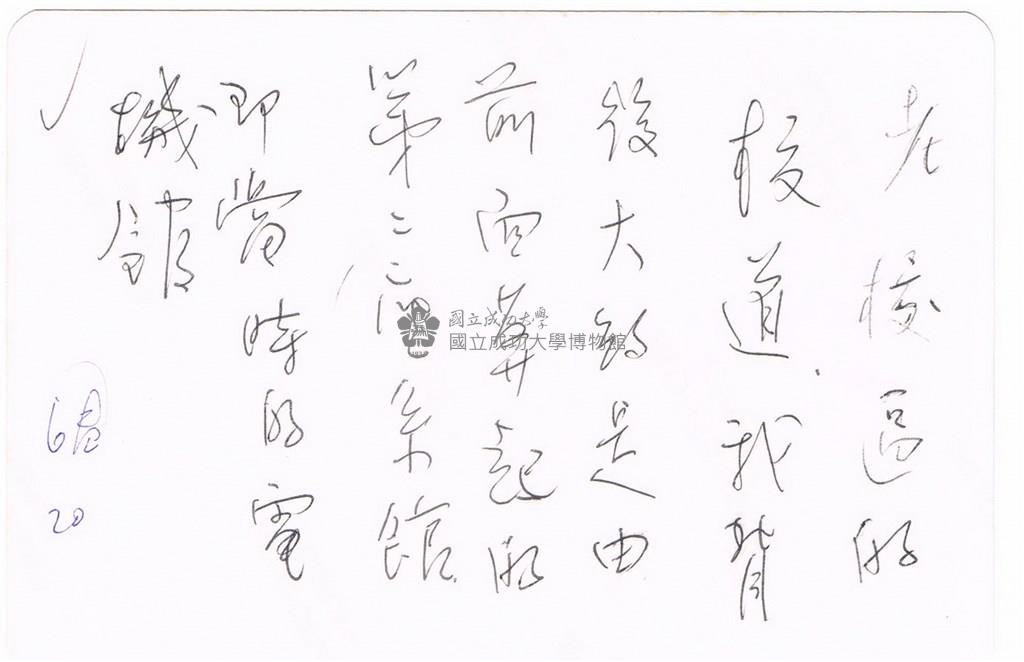 老校區的
校道，我背
後大的是由
前面算起的
第二個系館
即當時的電
機館
20
國立成功大學
國立成功大學博物館